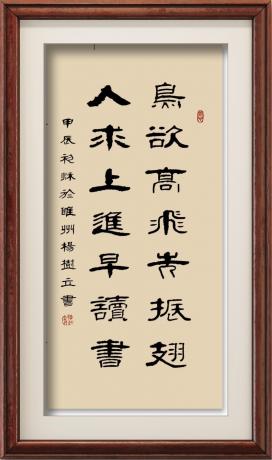 鳥欲髙飛先振翅
人求上進早讀書
甲辰初秋於睢州楊樹立書